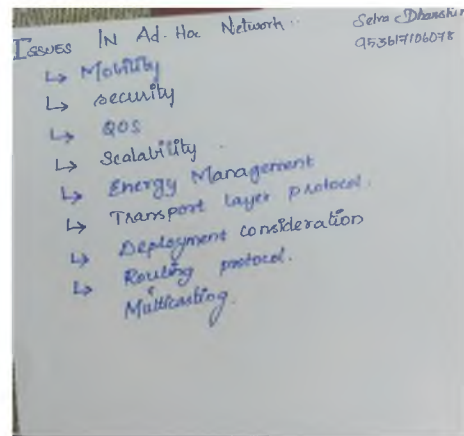 Issues IN Ad. Hoc Network:
Selva Dhanshi
953617106078
↳ Mobility
↳ security
↳ QOS
↳ Scalability
↳ Energy Management
↳ Transport Layer protocol.
↳ Deployment consideration
↳ Routing protocol.
Multicasting.